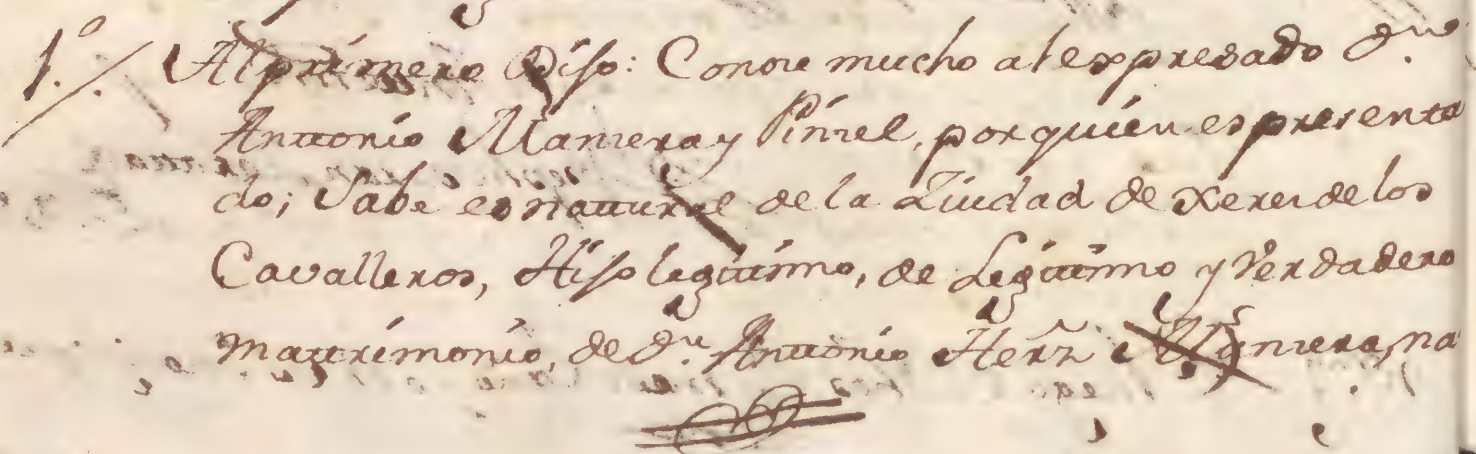 1.º/ Al primero Dijo: Conoce mucho al expresado Dn.
Anttonio Manzera y Pimiel, por quien es presenta
do; Sabe es natturàl de la Ziudad de Xerez de los
Cavalleros, Hijo legittimo, de Legittimo y Verdadero
mattrimonio, de Dn. Anttonio Hernz Manzera, na